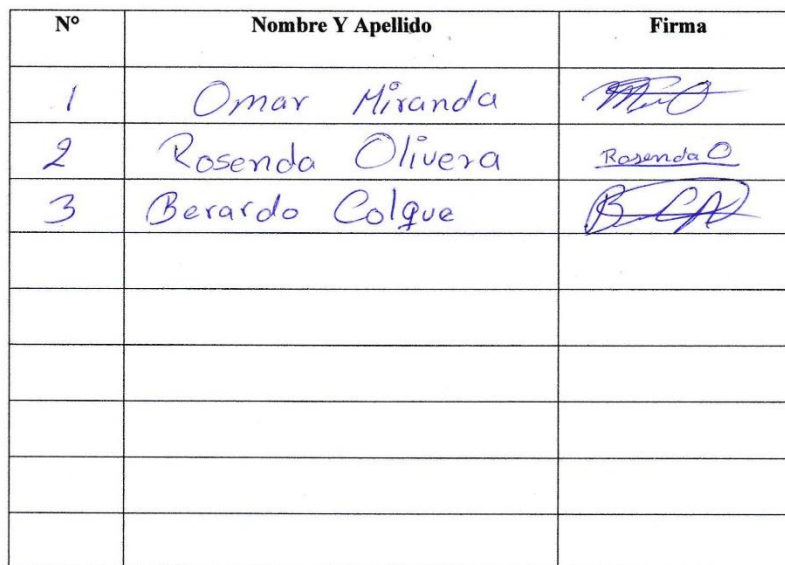 N° Nombre Y Apellido Firma
1 Omar Miranda
2 Rosenda Olivera Rosenda O
3 Berardo Colque